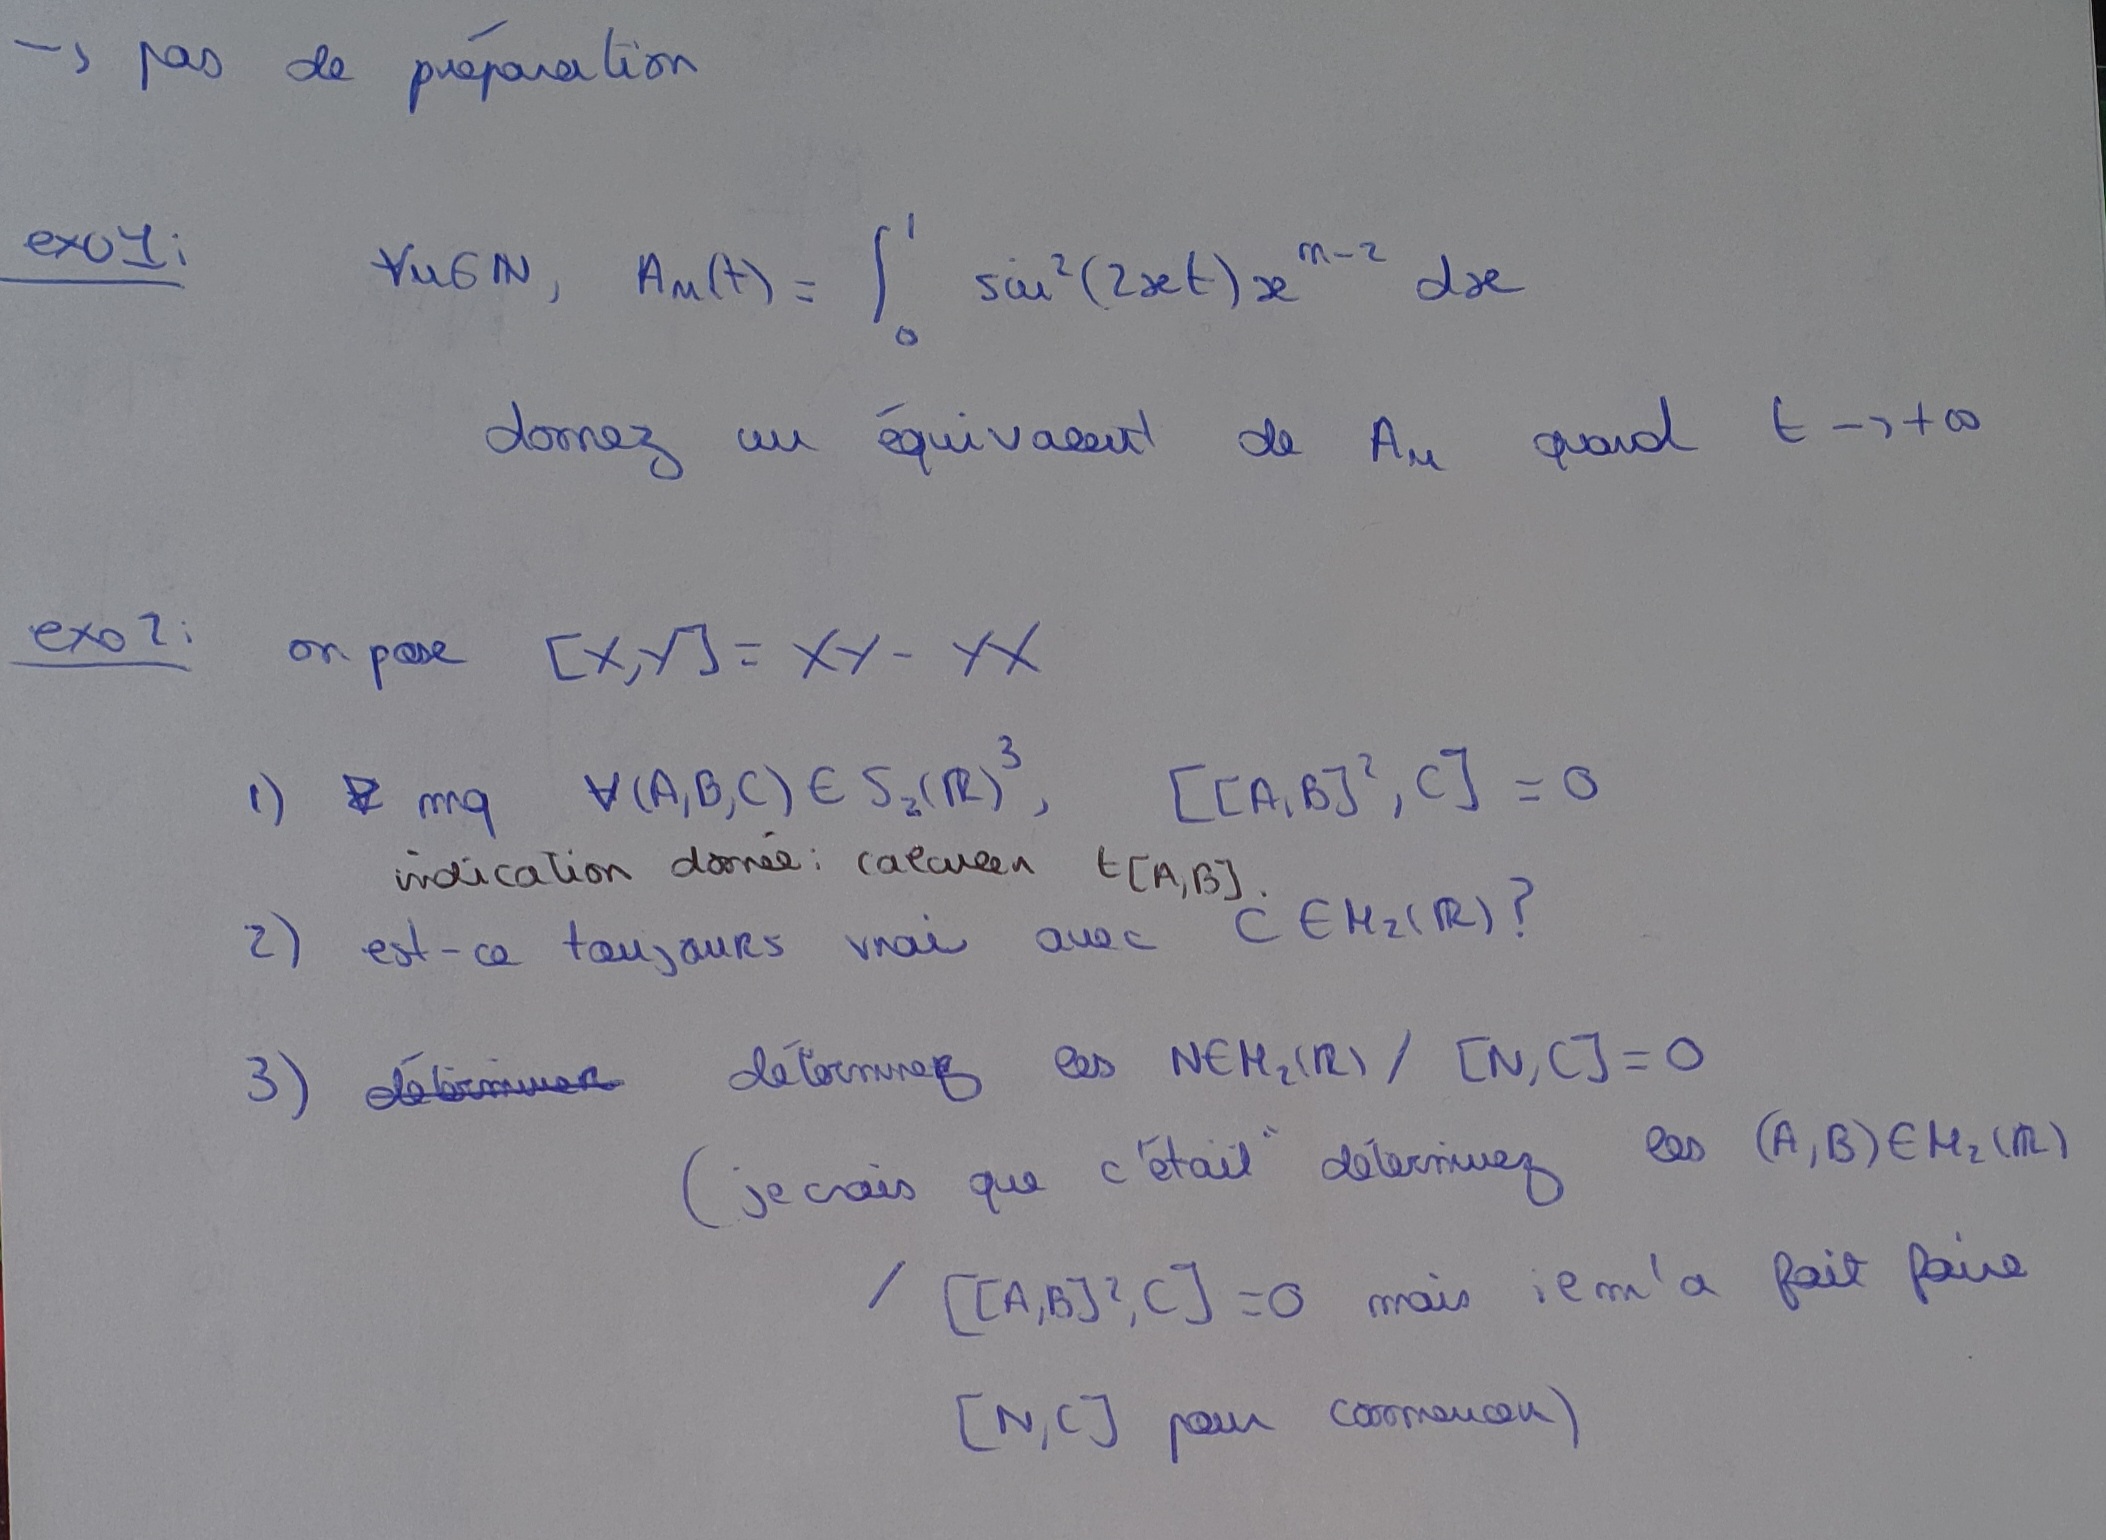 → pas de préparation
exo 1: ∀n∈ℕ, Aₙ(t) = ∫₀¹ sin²(2xt) xⁿ⁻² dx
donnez un équivalent de Aₙ quand t → +∞
exo 2: on pose [X,Y] = XY - YX
1) mq ∀(A,B,C) ∈ S₂(ℝ)³, [[A,B]², C] = 0
indication donnée: calculer ᵗ[A,B].
2) est-ce toujours vrai avec C ∈ M₂(ℝ)?
3) déterminer déterminez les N∈M₂(ℝ) / [N,C] = 0
(je crois que c'était "déterminez les (A,B) ∈ M₂(ℝ)
/ [[A,B]², C] = 0 mais il m'a fait faire
[N,C] pour commencer)